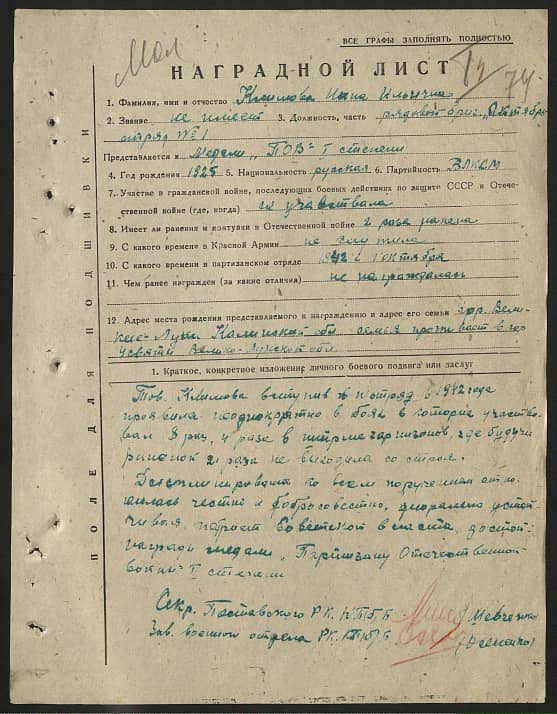 Мал
ВСЕ ГРАФЫ ЗАПОЛНЯТЬ ПОЛНОСТЬЮ
НАГРАДНОЙ ЛИСТ
74
1. Фамилия, имя и отчество Климова Нина Ильична
2. Звание не имеет 3. Должность, часть рядовой бриг. „Октября
отряд № 1
Представляется к Медали „ПОВ" I степени
4. Год рождения 1925 5. Национальность русская 6. Партийность ВЛКСМ
7. Участие в гражданской войне, последующих боевых действиях по защите СССР и Отече-
ственной войне (где, когда) не участвовала
8. Имеет ли ранения и контузии в Отечественной войне 2 раза ранена
9. С какого времени в Красной Армии не служила
10. С какого времени в партизанском отряде 1942 с октября
11. Чем ранее награжден (за какие отличия) не награждалась
12. Адрес места рождения представляемого к награждению и адрес его семьи гор. Вели-
кие-Луки Калинской обл семья проживает в гор
Усвяты Велико-Лукской обл.
1. Краткое, конкретное изложение личного боевого подвига или заслуг
Тов. Климова вступив в п/отряд в 1942 года
проявила неоднократно в боях в которых участво-
вала 8 раз, 4 раза в гарнизонов, где будучи
2 раза не выходила со строя.
ко всем порученным отно-
силась честно и добросовестно, морально устой-
чивая патриот Советской власти достой
награды медали „Партизану Отечественной
войны" I степени
Секр. Поставского РК КП/б/Б (Шевченко)
Зав. военного отдела РК КП/б/Б
ПОЛЕ ДЛЯ ПОДШИВКИ